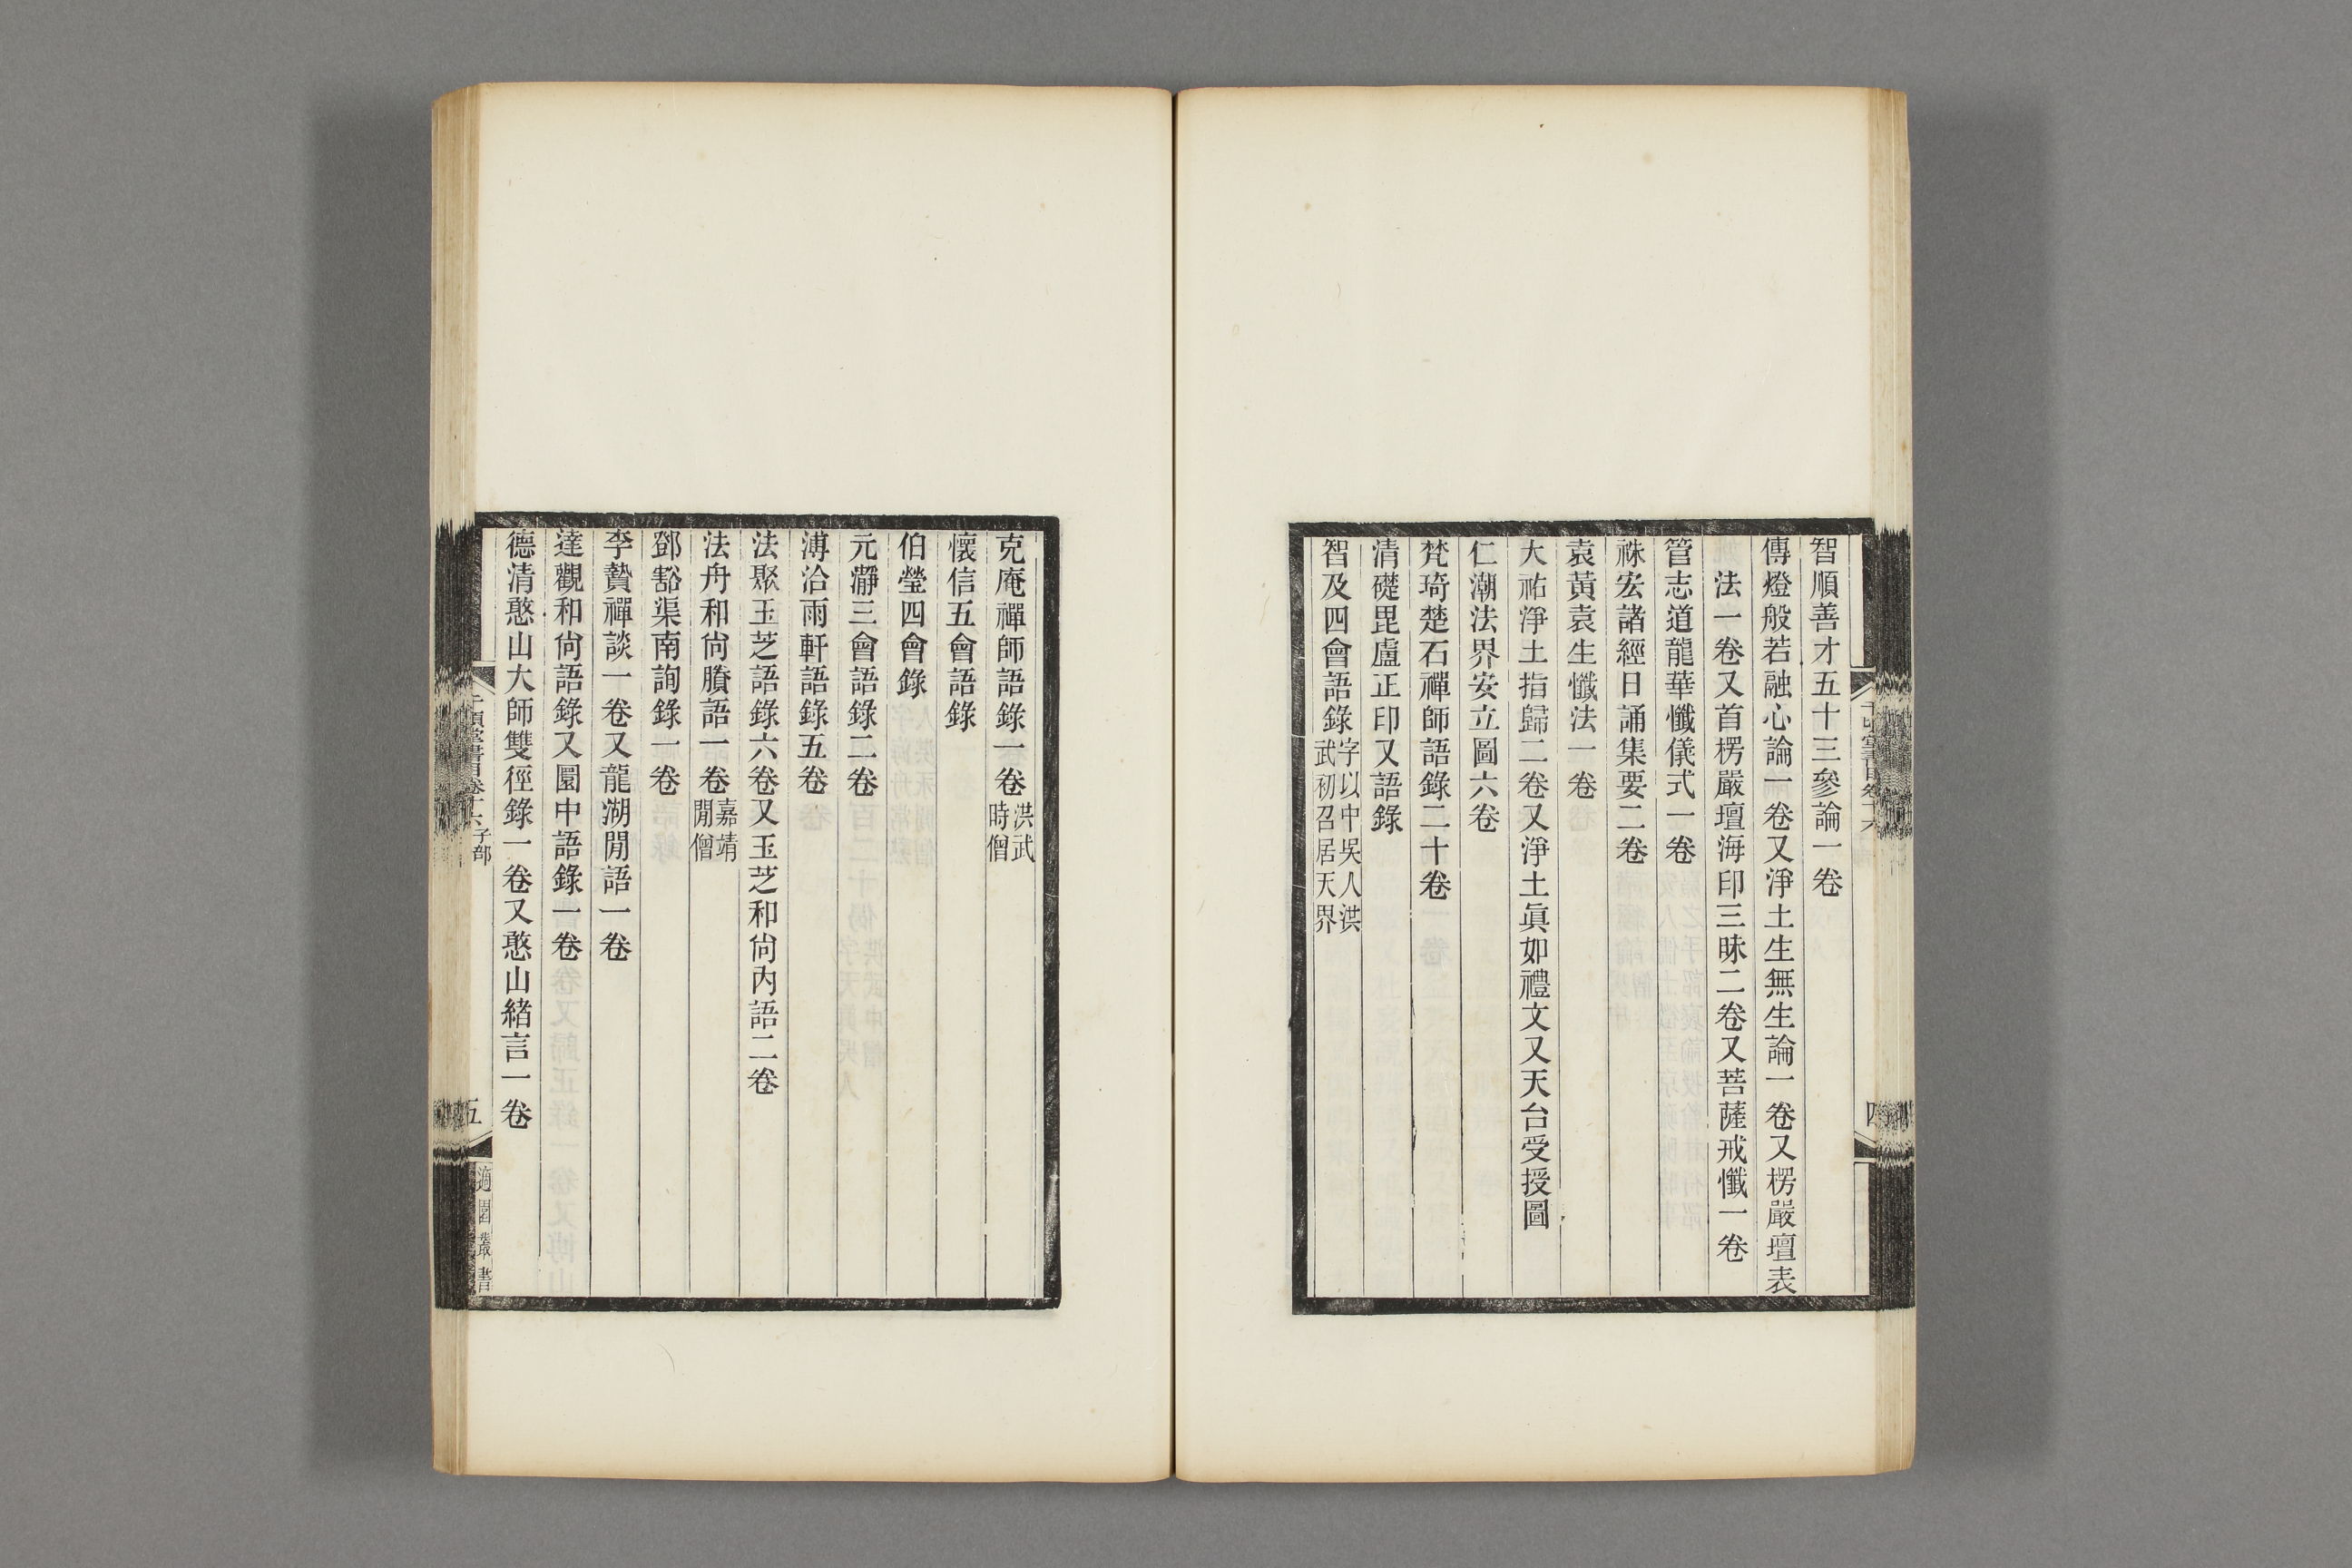 智順善才五十三參論一卷
傳燈般若融心論一卷又淨土生無生論一卷又楞嚴壇表
法一卷又首楞嚴壇海印三昧二卷又菩薩戒懺一卷
管志道龍華懺儀式一卷
祩宏諸經日誦集要二卷
袁黃袁生懺法一卷
大祐淨土指歸二卷又淨土眞如禮文又天台受授圖
仁潮法界安立圖六卷
梵琦楚石禪師語錄二十卷
清礎毘盧正印又語錄
智及四會語錄字以中吳人洪武初召居天界
克庵禪師語錄一卷洪武時僧
懷信五會語錄
伯瑩四會錄
元瀞三會語錄二卷
溥洽雨軒語錄五卷
法聚玉芝語錄六卷又玉芝和尙內語二卷
法舟和尙賸語一卷嘉靖閒僧
鄧豁渠南詢錄一卷
李贄禪談一卷又龍湖閒語一卷
達觀和尙語錄又圜中語錄一卷
德清憨山大師雙徑錄一卷又憨山緒言一卷
千頃堂書目卷十六子部
五
適園叢書